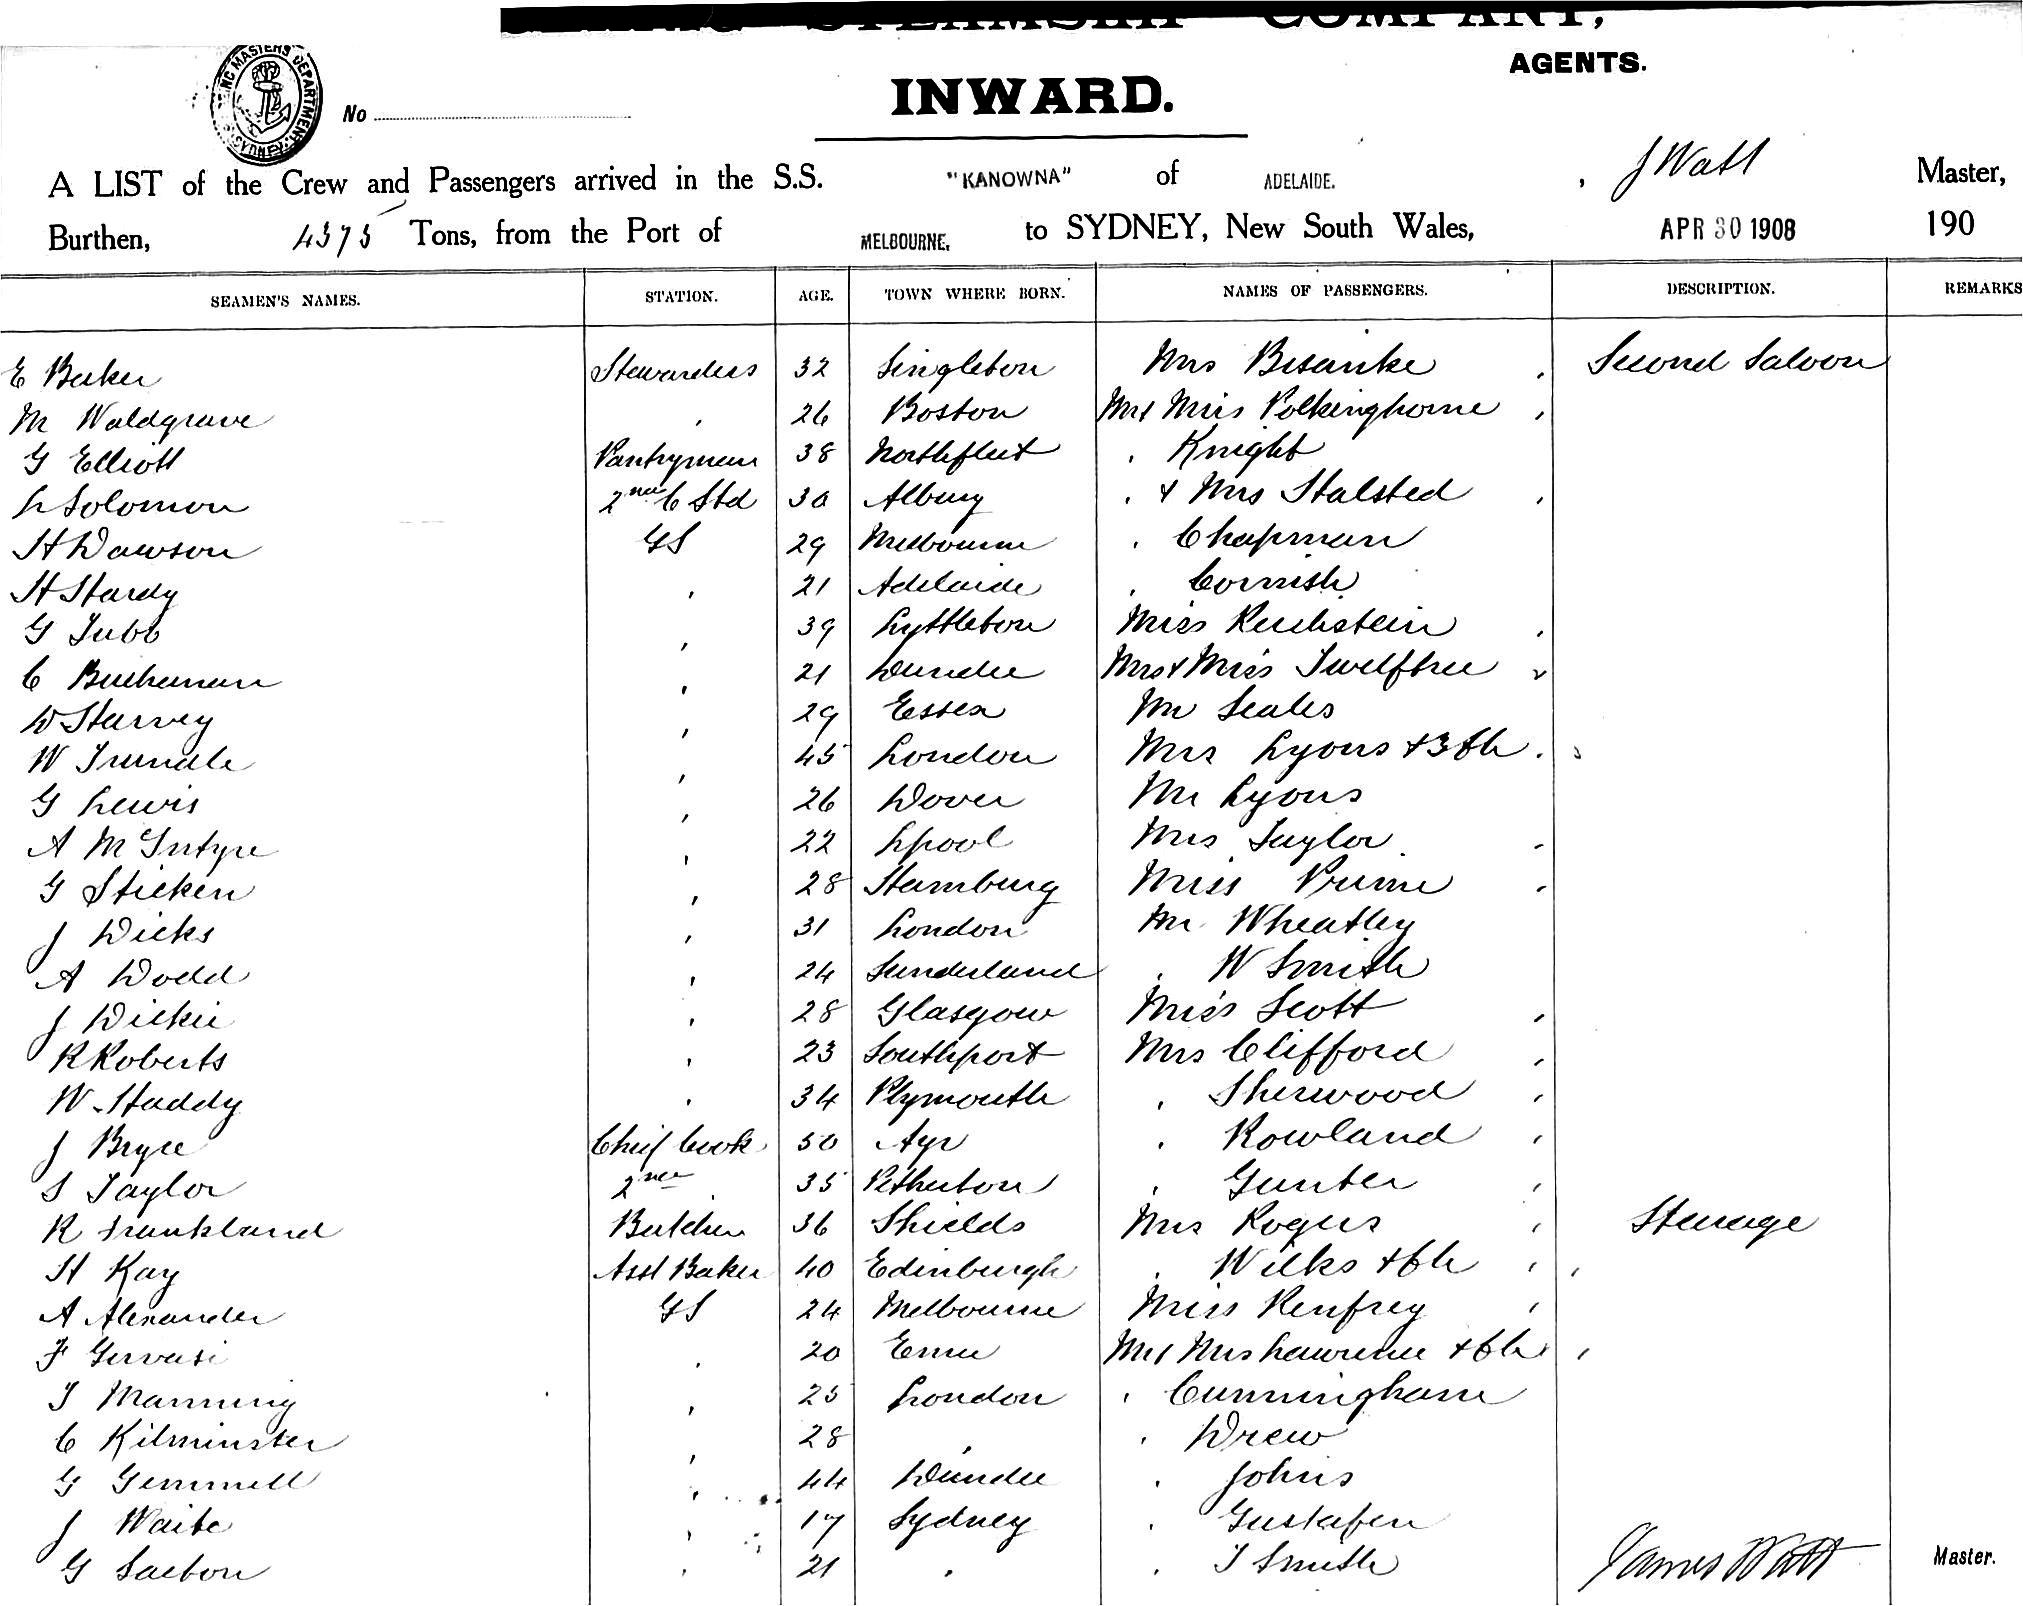 STEAMSHIP COMPANY,
AGENTS.
INWARD.
MASTERS DEPARTMENT SYDNEY
No
A LIST of the Crew and Passengers arrived in the S.S. "KANOWNA" of ADELAIDE. , J Watt Master,
Burthen, 4375 Tons, from the Port of MELBOURNE, to SYDNEY, New South Wales, APR 30 1908 190
SEAMEN'S NAMES. STATION. AGE. TOWN WHERE BORN. NAMES OF PASSENGERS. DESCRIPTION. REMARKS
E Baker Stewardess 32 Singleton Mrs Second Saloon
M Waldgrave 26 Boston Mr & Miss Polkinghorne
G Elliott Pantryman 38 Northfleet Knight
L Solomon 2nd C Std 30 Albury & Mrs Stalsted
H Dawson GS 29 Melbourne Chapman
H Hardy 21 Adelaide Cornish
G Tubb 39 Lyttleton Miss Reichstein
C Buchanan 21 Dundee Mrs & Miss Twelftree
W Harvey 29 Essex Mr Scales
W Trundle 45 London Mrs Lyons & 3 Ch
G Lewis 26 Dover Mr Lyons
A McIntyre 22 Lpool Mrs Taylor
G Sticken 28 Hamburg Miss Prime
J Dicks 31 London Mr Wheatley
A Dodd 24 Sunderland W Smith
J Dickie 28 Glasgow Miss Scott
R Roberts 23 Southport Mrs Clifford
W Haddy 34 Plymouth Sherwood
J Bryce Chief Cook 50 Ayr Rowland
S Taylor 2nd 35 Petherton Gunter
R Frankland Butcher 36 Shields Mrs Rogers Steerage
H Kay Asst Baker 40 Edinburgh Wilks & Ch
A Alexander GS 24 Melbourne Miss Renfrey
F Gervasi 20 Mr & Mrs Lawrence & Ch
T Manning 25 London Cunningham
C Kilminster 28 Drew
G Gemmell 44 Dundee Johns
J Waite 17 Sydney Gustafen
G Saxton 21 T Smith James Watt Master.